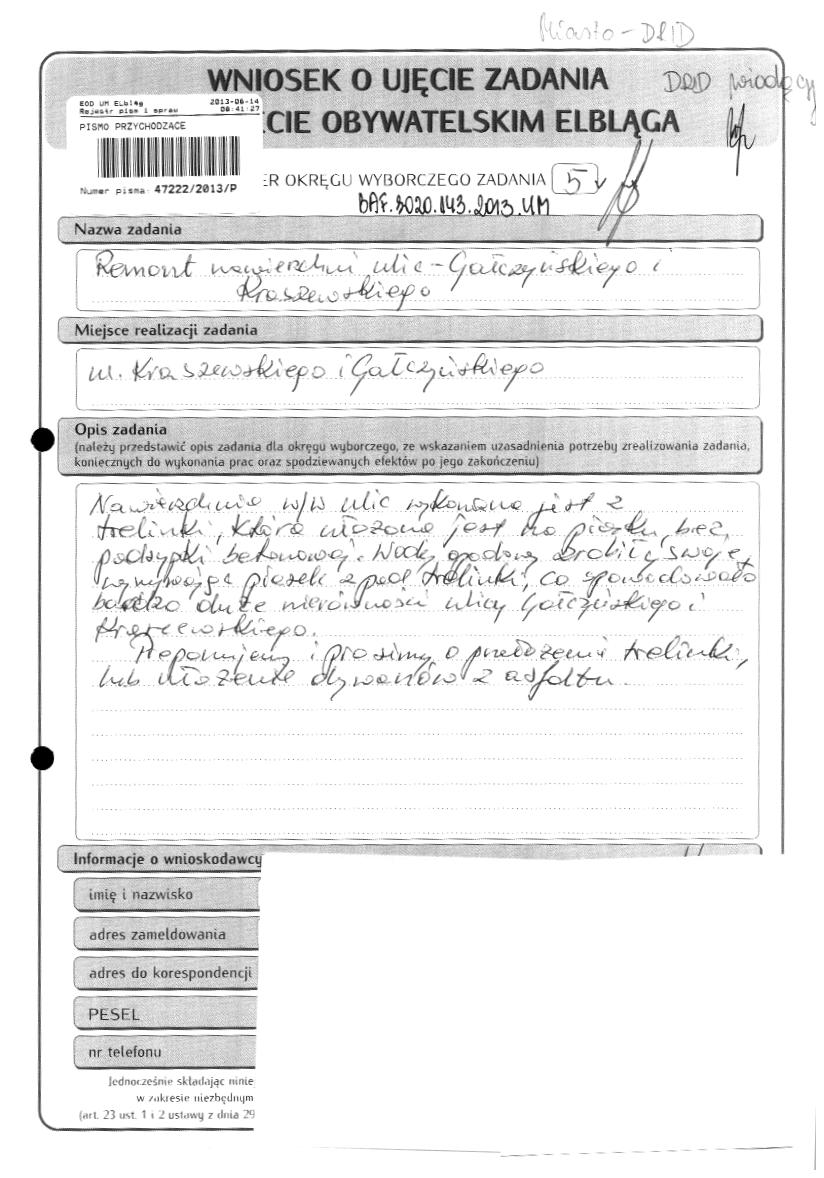 Miasto - DRID
WNIOSEK O UJĘCIE ZADANIA
DRID wiodący
EOD UM Elbląg 2013-06-14
Rejestr pism i spraw 08:41:27
PISMO PRZYCHODZĄCE
Numer pisma: 47222/2013/P
ECIE OBYWATELSKIM ELBLĄGA
ER OKRĘGU WYBORCZEGO ZADANIA 5
BAF.3020.143.2013.UM
Nazwa zadania
Remont nawierzchni ulic - Gałczyńskiego i
Kraszewskiego
Miejsce realizacji zadania
ul. Kraszewskiego i Gałczyńskiego
Opis zadania
(należy przedstawić opis zadania dla okręgu wyborczego, ze wskazaniem uzasadnienia potrzeby zrealizowania zadania,
koniecznych do wykonania prac oraz spodziewanych efektów po jego zakończeniu)
Nawierzchnia w/w ulic wykonana jest z
trelinki, która ułożona jest na piasku, bez
podsypki betonowej. Wody opadowe zrobiły swoje,
wymywając piasek z pod trelinki, co spowodowało
bardzo duże nierówności ulicy Gałczyńskiego i
Kraszewskiego.
i prosimy o przełożenie trelinki,
lub ułożenie dywanów z asfaltu.
Informacje o wnioskodawcy
imię i nazwisko
adres zameldowania
adres do korespondencji
PESEL
nr telefonu
Jednocześnie składając ninie
w zakresie niezbędnym
(art. 23 ust. 1 i 2 ustawy z dnia 29